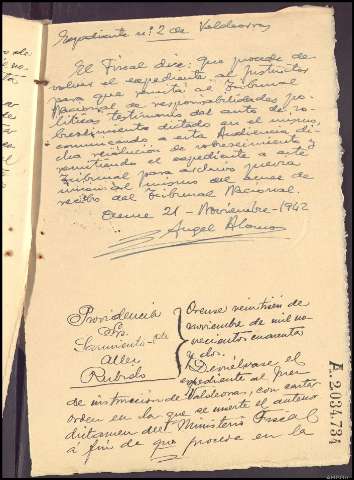 Expediente nº 2 de Valdeorras
El Fiscal dice: que procede de
volver el expediente al Instructor
para que remita al Tribunal
Nacional de responsabilidades po-
líticas testimonio del auto de so-
breseimiento dictado en el mismo,
comunicando a esta Audiencia di-
cha resolución de sobreseimiento y
remitiendo el expediente a este
Tribunal para archivo previa
unión al mismo del acuse de
recibo del Tribunal Nacional.
Orense 21-Noviembre-1942
Angel Alonso
Providencia
Sres
Sarmiento
Aller
Rubido
Orense veintiseis de
noviembre de mil no-
vecientos cuarenta
y dos.
Devuélvase el
expediente al Juez
de instrucción de Valdeorras, con carta
orden en la que se inserte el anterior
dictamen del Ministerio Fiscal
á fin de que proceda en la
A.2034.734